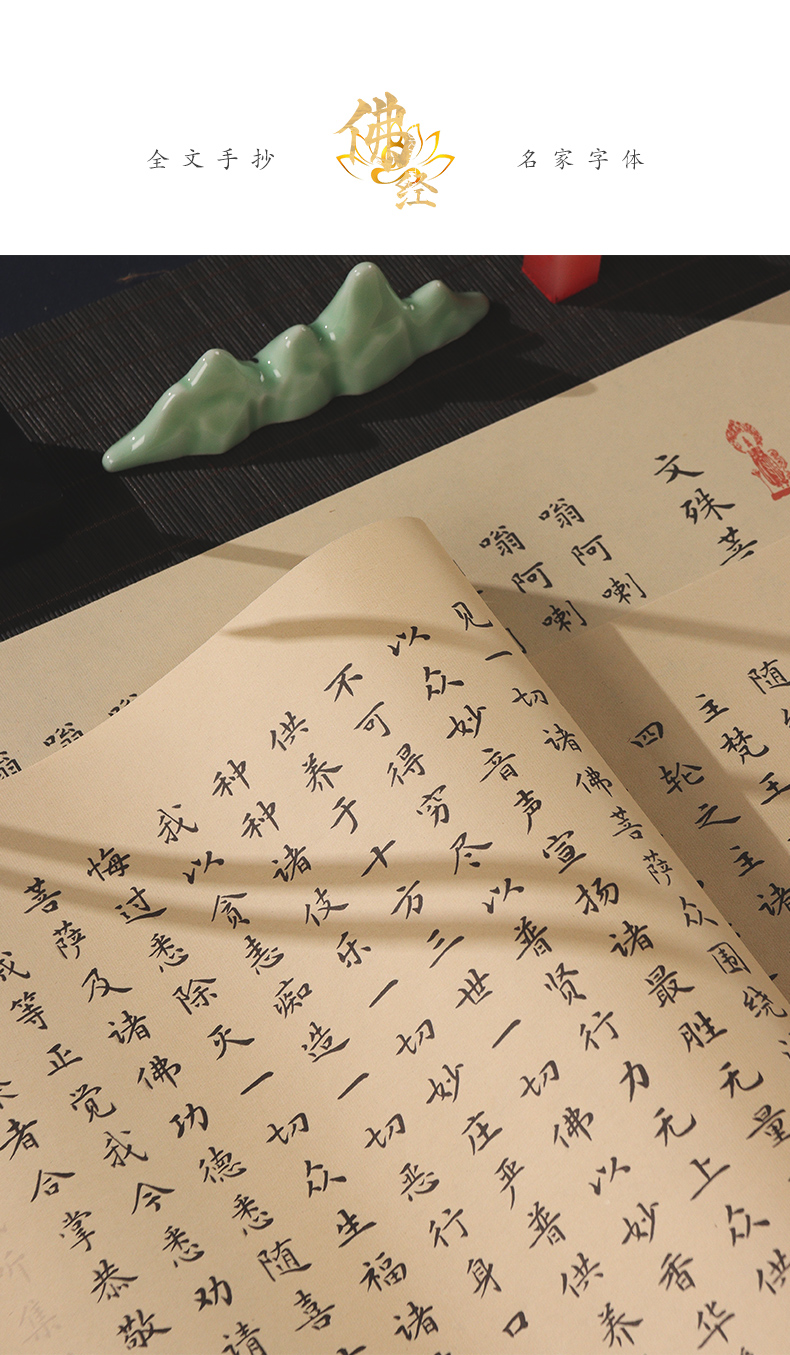 全文手抄
佛经
名家字体
文殊菩
嗡阿喇
嗡阿喇
嗡
嗡
随
主梵王
四轮之主诸
见一切诸佛菩萨众围绕
以众妙音声宣扬诸最胜无量
不可得穷尽以普贤行力无上众供
供养于十方三世一切佛以妙香华
种种诸伎乐一切妙庄严普供养
我以贪恚痴造一切恶行身口
悔过悉除灭一切众生福诸
菩萨及诸佛功德悉随喜
成等正觉我今悉劝请
者合掌恭敬